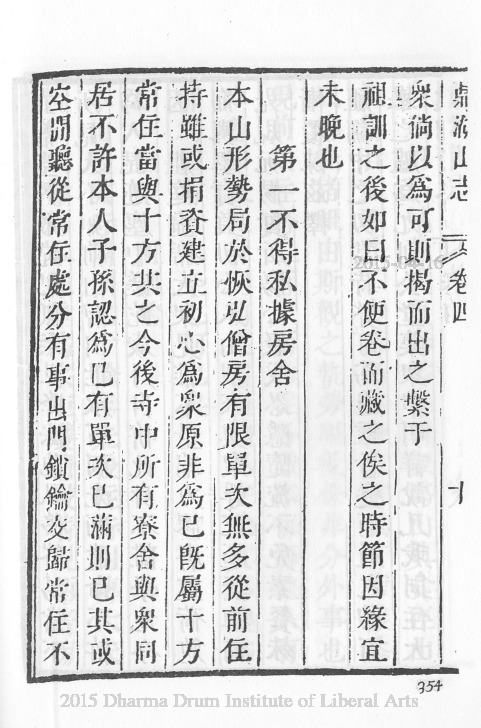 鼎湖山志 卷四 十
衆倘以爲可則揭而出之繫于
祖訓之後如曰不便卷而藏之俟之時節因緣宜
未晚也
第一不得私據房舍
本山形勢局於恢弘僧房有限單次無多從前住
持雖或捐資建立初心爲衆原非爲已旣屬十方
常住當與十方共之今後寺中所有寮舍與衆同
居不許本人子孫認爲已有單次已滿則已其或
空閒聽從常住處分有事出門鎖鑰交歸常住不
354
2015 Dharma Drum Institute of Liberal Arts